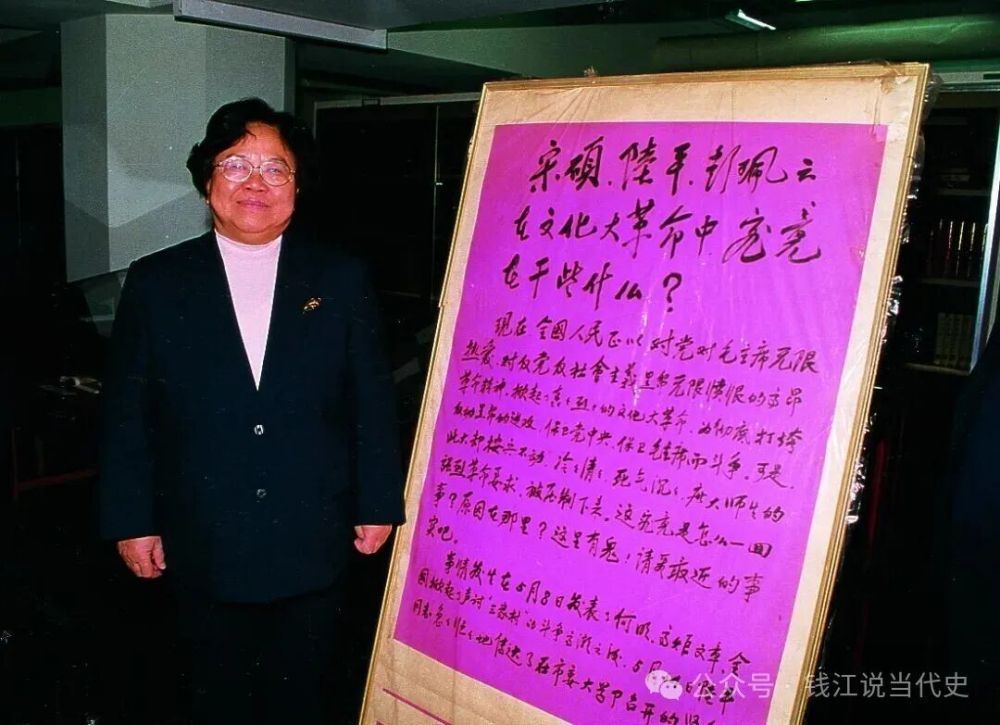 宋碩、陸平、彭珮云
在文化大革命中究竟
在干些什么?
现在全国人民正以对党对毛主席无限
热爱、对反党反社会主義黑帮无限憤恨的高昂
革命精神,掀起了轰々烈々的文化大革命,为彻底打垮
反动黑帮的进攻,保卫党中央,保卫毛主席而斗争,可是,
北大却按兵不动,冷々清々,死气沉々,广大师生的
强烈革命要求,被压制下来。这究竟是怎么一回
事?原因在那里?这里有鬼!请看最近的事
实吧。
事情发生在5月8日发表了何明、高炬文章,全
国掀起了声讨“三家村”的斗争高潮之后,5月 日陸平
同志急々忙々地传达了在市委大学部召开的
公众号 · 钱江说当代史